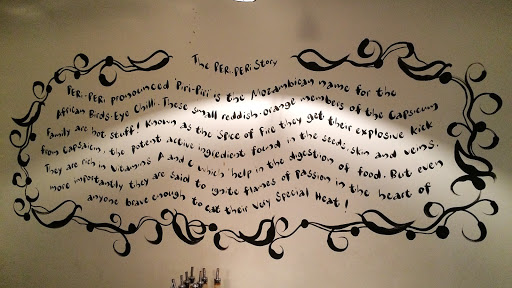 The PERi-PERi Story
PERi-PERi, pronounced 'Piri-Piri' is the Mozambican name for the
African Birds-Eye Chilli. These small reddish-orange members of the Capsicum
Family are hot stuff! Known as the Spice of Fire they get their explosive kick
from Capsaicin, the potent active ingredient found in the seeds, skin and veins.
They are rich in Vitamins A and C which help in the digestion of food. But even
more importantly they are said to ignite flames of passion in the heart of
anyone brave enough to eat their Very Special Heat!